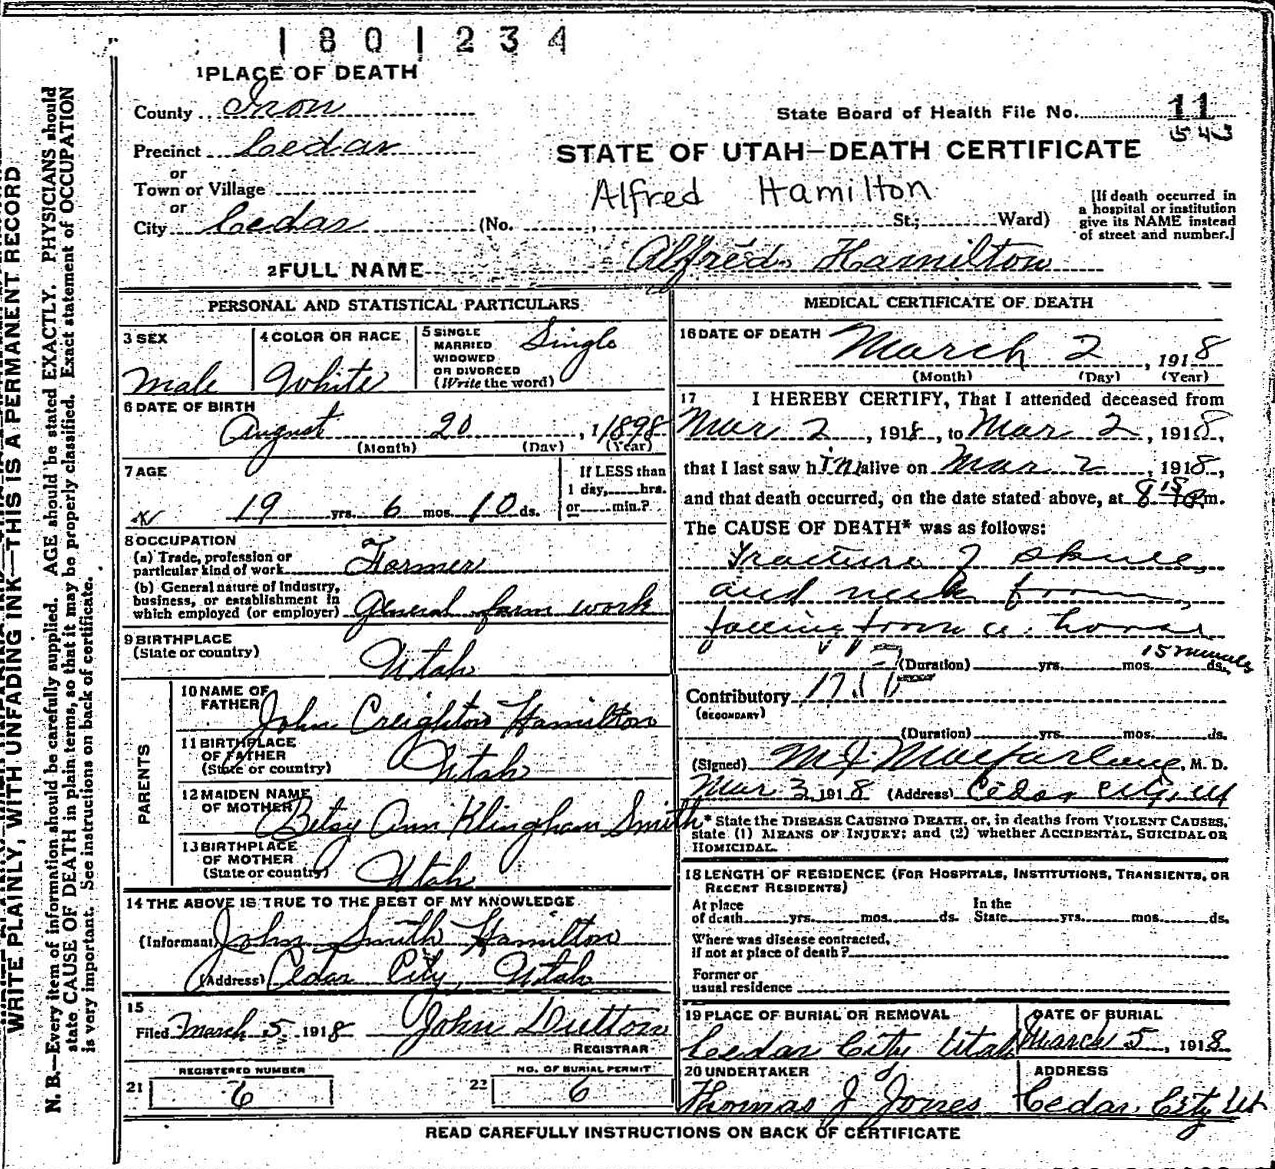 1801234
1 PLACE OF DEATH
County Iron
State Board of Health File No. 11
543
Precinct Cedar
STATE OF UTAH—DEATH CERTIFICATE
or
Town or Village
Alfred Hamilton
or
City Cedar (No. , St; Ward)
[If death occurred in
a hospital or institution
give its NAME instead
of street and number.]
2 FULL NAME Alfred Hamilton
PERSONAL AND STATISTICAL PARTICULARS
3 SEX
Male
4 COLOR OR RACE
White
5 SINGLE
MARRIED
WIDOWED
OR DIVORCED
(Write the word)
Single
6 DATE OF BIRTH
August 20, 1898
(Month) (Day) (Year)
7 AGE
19 yrs. 6 mos. 10 ds.
If LESS than
1 day, hrs.
or min.?
8 OCCUPATION
(a) Trade, profession or
particular kind of work Farmer
(b) General nature of Industry,
business, or establishment in
which employed (or employer) General farm work
9 BIRTHPLACE
(State or country)
Utah
PARENTS
10 NAME OF
FATHER
John Creighton Hamilton
11 BIRTHPLACE
OF FATHER
(State or country)
Utah
12 MAIDEN NAME
OF MOTHER
Betsy Ann Klingham Smith
13 BIRTHPLACE
OF MOTHER
(State or country)
Utah
14 THE ABOVE IS TRUE TO THE BEST OF MY KNOWLEDGE
(Informant) John Smith Hamilton
(Address) Cedar City, Utah
15
Filed March 5 1918 John Dutton
REGISTRAR
REGISTERED NUMBER
21 6
NO. OF BURIAL PERMIT
22 6
MEDICAL CERTIFICATE OF DEATH
16 DATE OF DEATH March 2, 1918
(Month) (Day) (Year)
17 I HEREBY CERTIFY, That I attended deceased from
Mar 2, 1918, to Mar 2, 1918,
that I last saw him alive on Mar 2, 1918,
and that death occurred, on the date stated above, at 8 15 P m.
The CAUSE OF DEATH* was as follows:
Fracture of skull
and neck from
falling from a horse
(Duration) yrs. mos. 15 minutes ds.
Contributory
(SECONDARY)
(Duration) yrs. mos. ds.
(Signed) M J Macfarlane, M. D.
Mar 3, 1918 (Address) Cedar City, Ut
* State the DISEASE CAUSING DEATH, or, in deaths from VIOLENT CAUSES,
state (1) MEANS OF INJURY; and (2) whether ACCIDENTAL, SUICIDAL OR
HOMICIDAL.
18 LENGTH OF RESIDENCE (FOR HOSPITALS, INSTITUTIONS, TRANSIENTS, OR
RECENT RESIDENTS)
At place
of death yrs. mos. ds.
In the
State yrs. mos. ds.
Where was disease contracted,
if not at place of death?
Former or
usual residence
19 PLACE OF BURIAL OR REMOVAL
Cedar City Utah
DATE OF BURIAL
March 5, 1918
20 UNDERTAKER
Thomas J Jones
ADDRESS
Cedar City Ut
READ CAREFULLY INSTRUCTIONS ON BACK OF CERTIFICATE
WRITE PLAINLY, WITH UNFADING INK—THIS IS A PERMANENT RECORD
N. B.—Every item of information should be carefully supplied. AGE should be stated EXACTLY. PHYSICIANS should
state CAUSE OF DEATH in plain terms, so that it may be properly classified. Exact statement of OCCUPATION
is very important. See instructions on back of certificate.